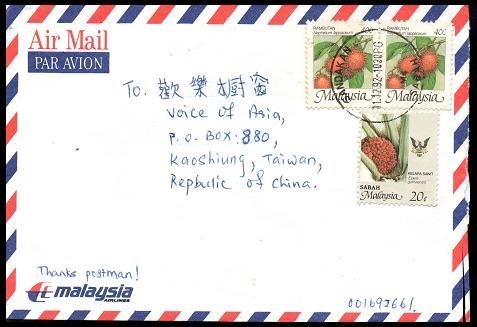 Air Mail
PAR AVION
RAMBUTAN
Nephelium lappaceum
40¢
Malaysia
RAMBUTAN
Nephelium lappaceum
40¢
Malaysia
SANDAKAN
11.12.92-1030PG
SABAH
To. 歡樂橱窗
Voice of Asia,
P.O. BOX: 880,
Kaoshiung, Taiwan,
Rephulic of China.
KELAPA SAWIT
Elaeis guineensis
SABAH
20¢
Malaysia
Thanks postman!
malaysia
AIRLINES